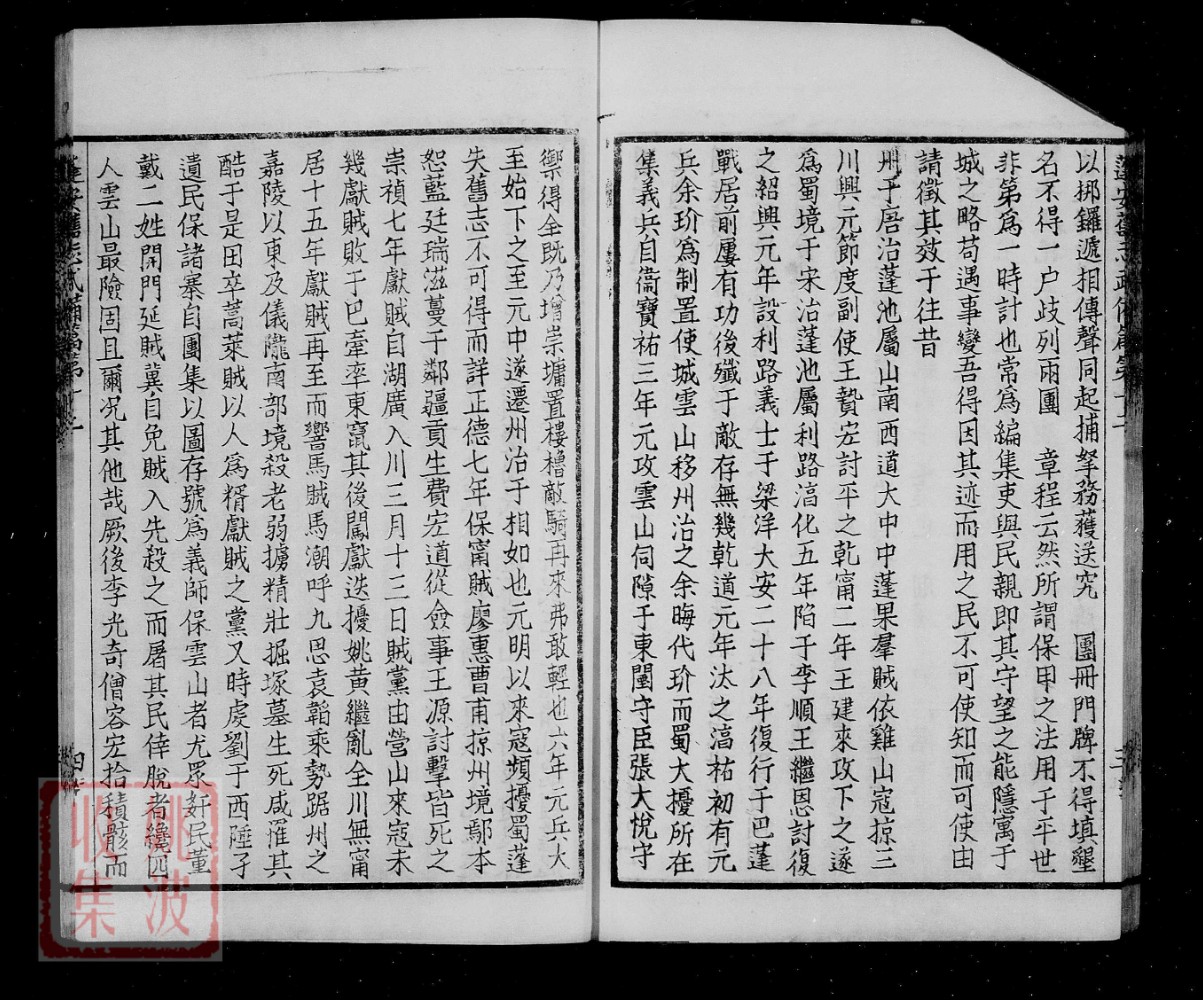 以梆鑼遞相傳聲同起捕拏務獲送究　團冊門牌不得填壑
名不得一户歧列兩團　章程云然所謂保甲之法用于平世
非第爲一時計也常爲編集吏與民親即其守望之能隱寓于
城之略苟遇事變吾得因其迹而用之民不可使知而可使由
請徵其效于往昔
州于唐治蓬池屬山南西道大中中蓬果羣賊依雞山寇掠三
川興元節度副使王贄宏討平之乾甯二年王建來攻下之遂
爲蜀境于宋治蓬池屬利路湻化五年陷于李順王繼恩討復
之紹興元年設利路義士于梁洋大安二十八年復行于巴蓬
戰居前屢有功後殲于敵存無幾乾道元年汰之湻祐初有元
兵余玠爲制置使城雲山移州治之余晦代玠而蜀大擾所在
集義兵自衞寶祐三年元攻雲山伺隙于東閣守臣張大悅守
禦得全既乃增崇墉置樓櫓敵騎再來弗敢輕也六年元兵大
至始下之至元中遂遷州治于相如也元明以來寇頻擾蜀蓬
失舊志不可得而詳正德七年保甯賊廖惠曹甫掠州境鄢本
恕藍廷瑞滋蔓于鄰疆貢生費宏道從僉事王源討擊皆死之
崇禎七年獻賊自湖廣入川三月十三日賊黨由營山來寇未
幾獻賊敗于巴牽率東竄其後闖獻迭擾姚黄繼亂全川無甯
居十五年獻賊再至而響馬賊馬潮呼九思袁韜乘勢踞州之
嘉陵以東及儀隴南部境殺老弱擄精壯掘塚墓生死咸罹其
酷于是田卒蒿萊賊以人爲糈獻賊之黨又時虔劉于西陲孑
遺民保諸寨自團集以圖存號爲義師保雲山者尤眾奸民董
戴二姓開門延賊冀自免賊入先殺之而屠其民倖脫者纔四
人雲山最險固且爾况其他哉厥後李光奇僧容宏拾積骸而
姚波
收集